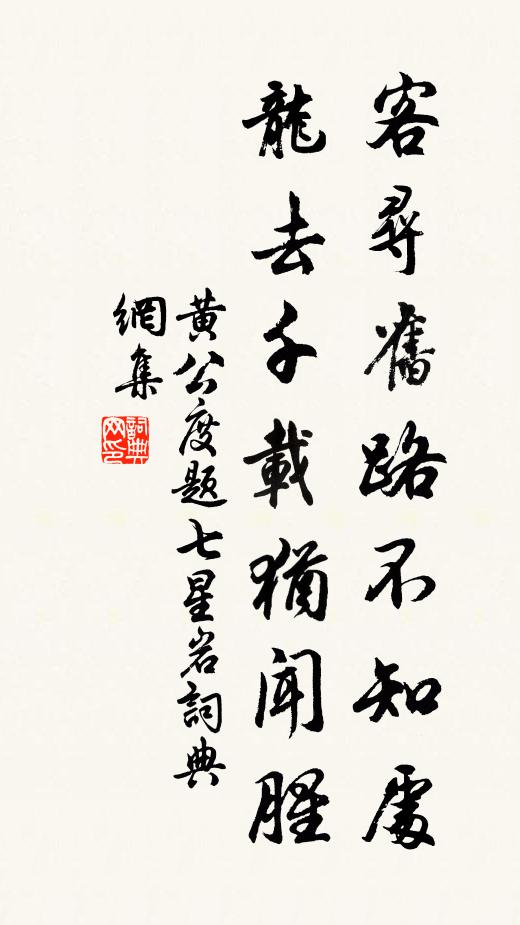 客尋舊路不知處
龍去千載猶聞腥
黃公度題七星岩詞典
網集
詞典
网印